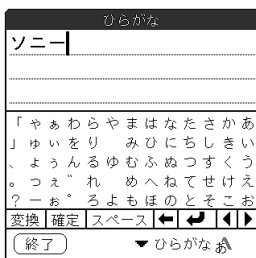 ひらがな
ソニー
「 ゃ ぁ わ ら や ま は な た さ か あ
」 ゅ ぃ を り み ひ に ち し き い
、 ょ ぅ ん る ゆ む ふ ぬ つ す く う
。 っ ぇ ゛ れ め へ ね て せ け え
? ー ぉ ゜ ろ よ も ほ の と そ こ お
変換 確定 スペース
終了 ひらがな あA